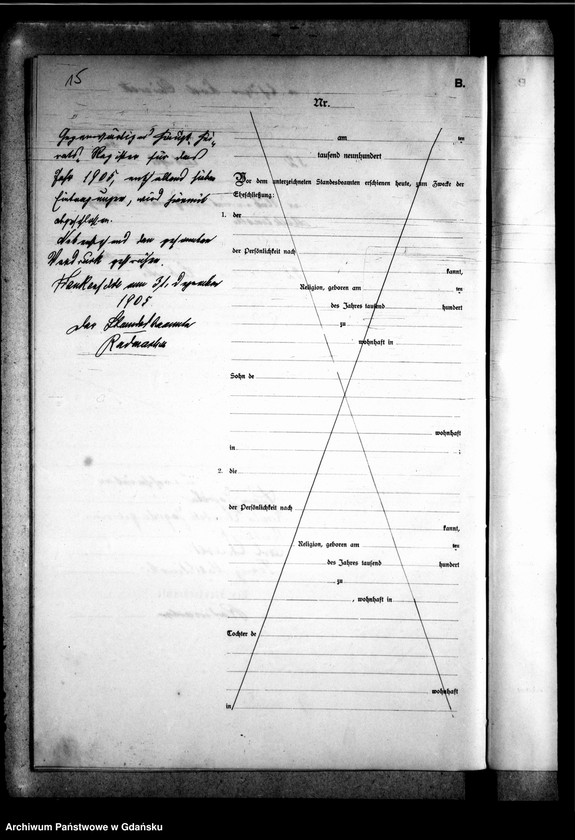 15
B.
Nr.
Gegenwärtiges Haupt-Hei-
rats-Register für das
Jahr 1905, enthaltend sieben
Eintragungen, wird hiermit
abgeschlossen.
den gesamten
Vordruck gestrichen.
Frankenfelde am 31. Dezember
1905
Der Standesbeamte
am ten
tausend neunhundert
Vor dem unterzeichneten Standesbeamten erschienen heute, zum Zwecke der
Eheschließung:
1. der
der Persönlichkeit nach
kannt,
Religion, geboren am ten
des Jahres tausend hundert
zu
wohnhaft in
Sohn de
wohnhaft
in ;
2. die
der Persönlichkeit nach
kannt,
Religion, geboren am ten
des Jahres tausend hundert
zu
, wohnhaft in
Tochter de
wohnhaft
in
Archiwum Państwowe w Gdańsku